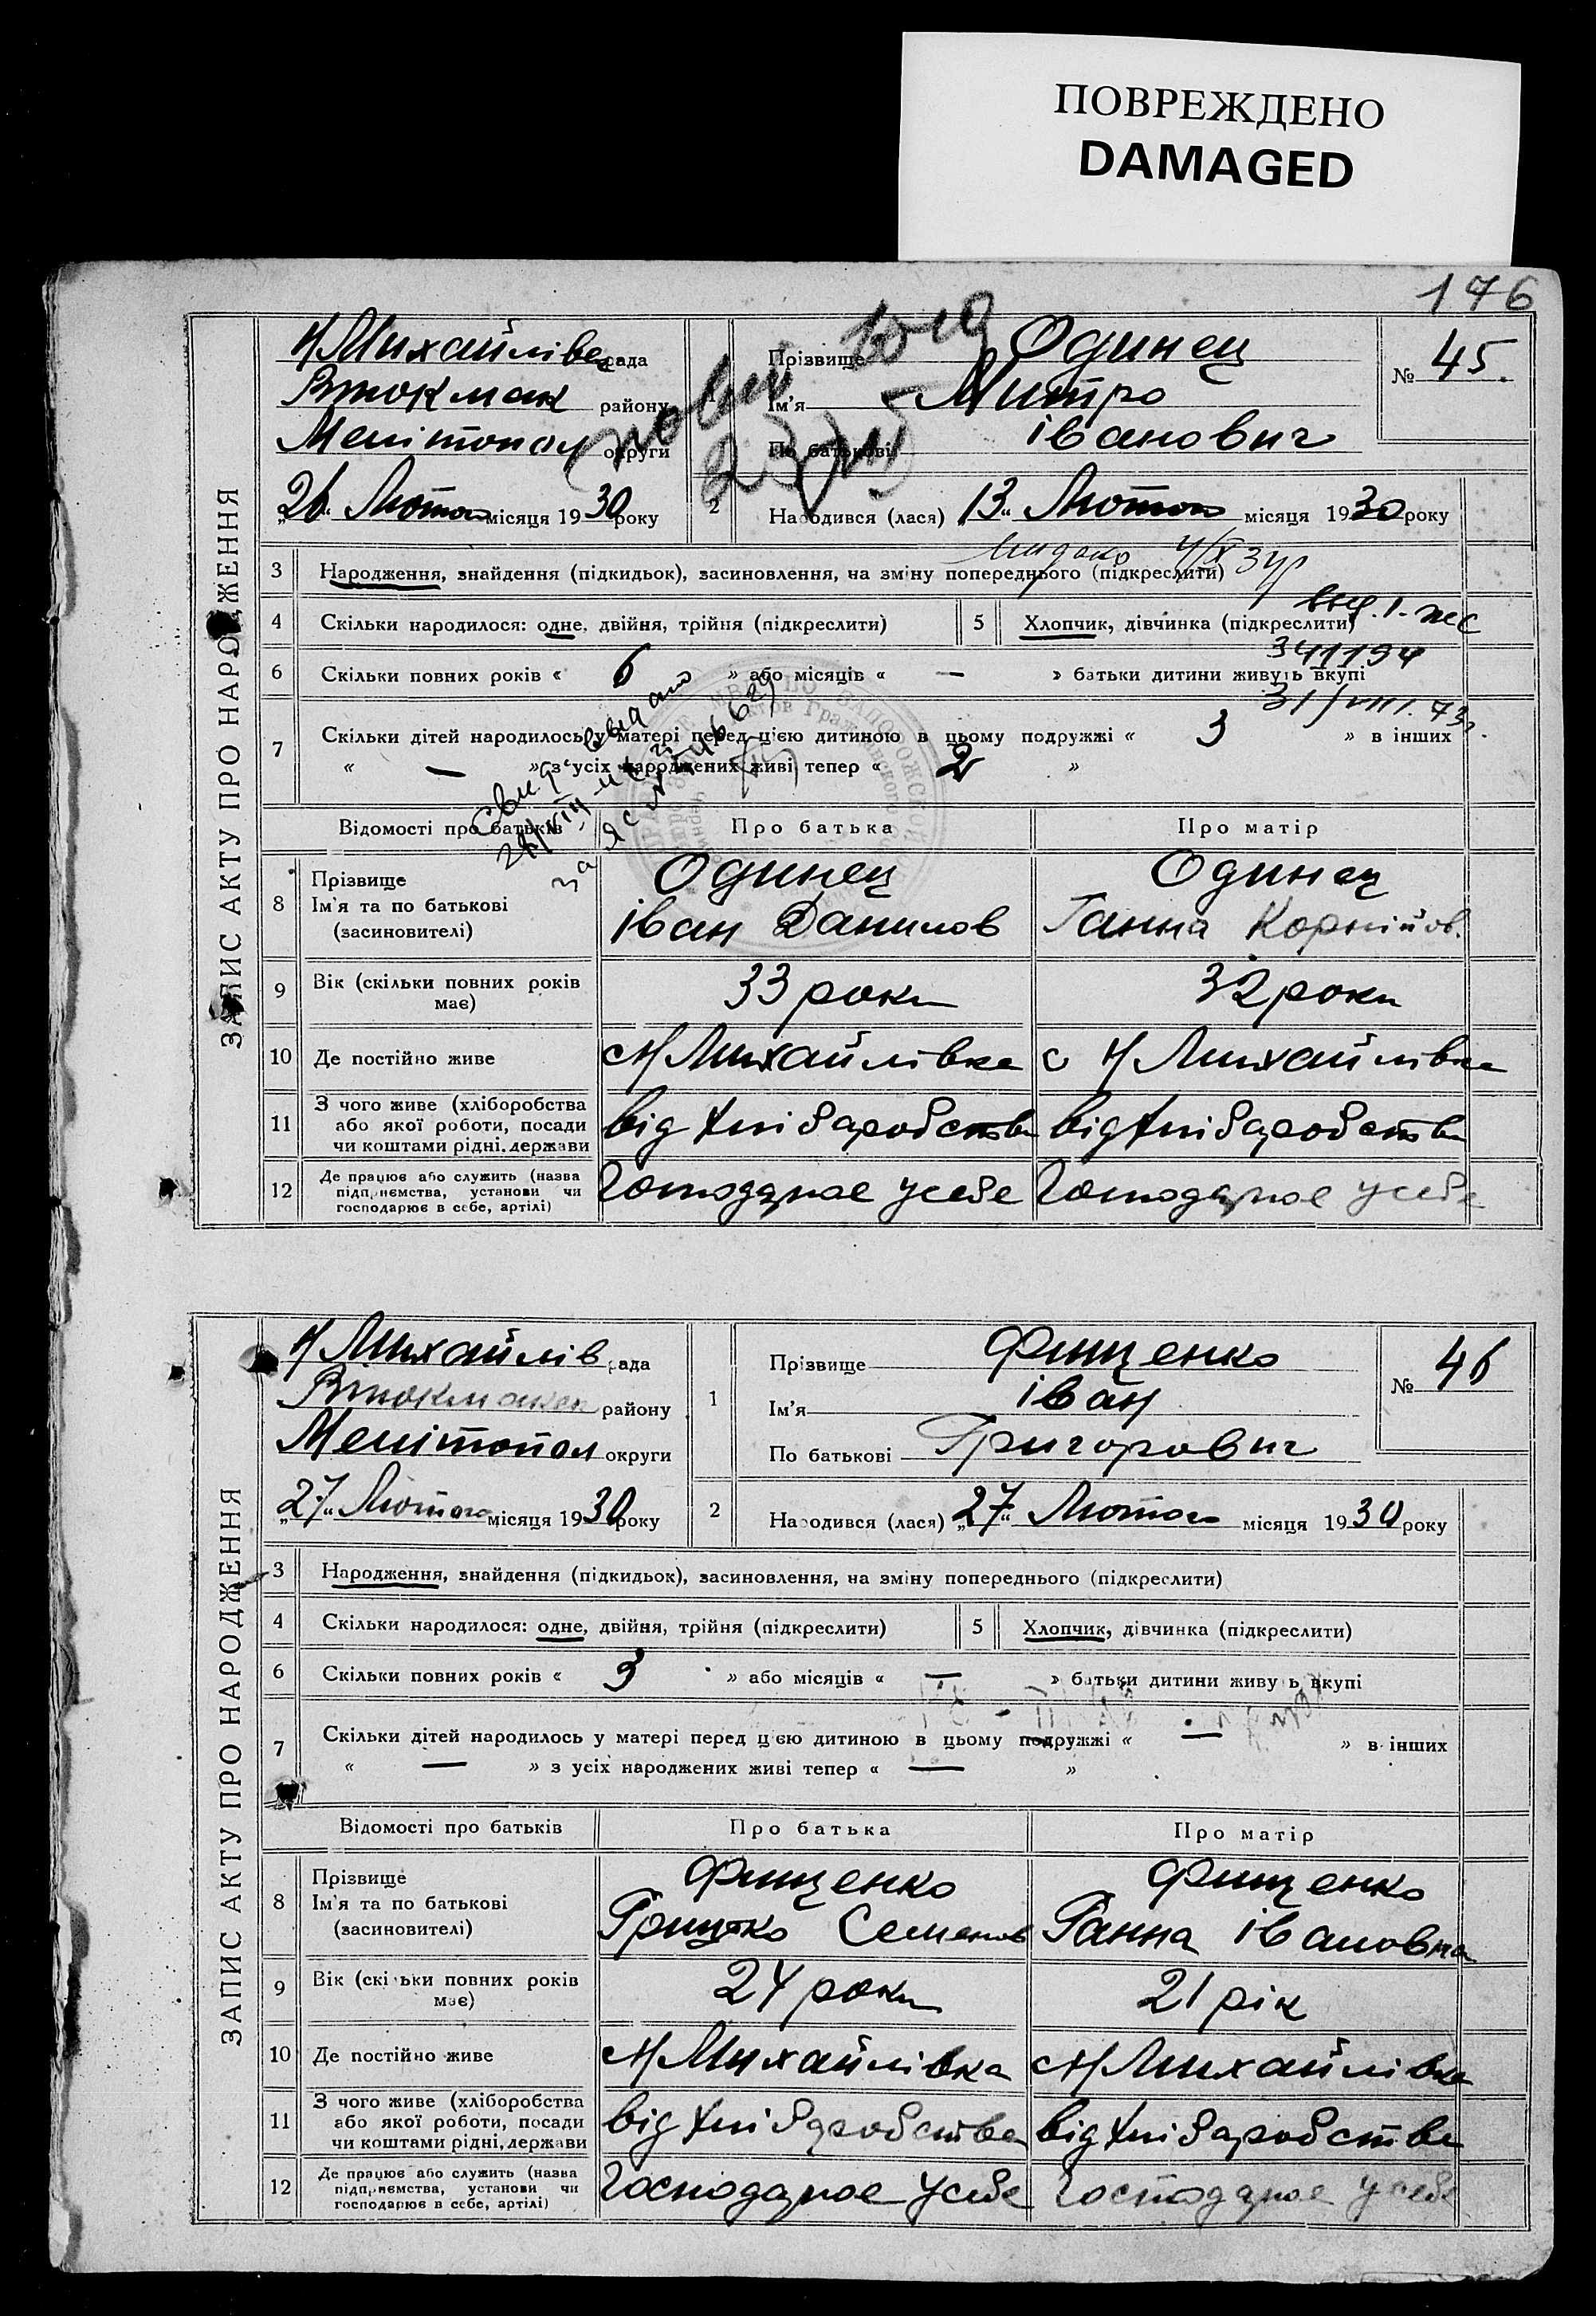 ПОВРЕЖДЕНО
DAMAGED
176
ЗАПИС АКТУ ПРО НАРОДЖЕННЯ
Н Михайлівс рада
Втокмак району
Мелітопол округи
„26“ Лютого місяця 1930 року
1
Прізвище Одинец
Ім'я Митро
По батькові Іванович
№ 45.
2
Народився (лася) „13“ Лютого місяця 1930 року
3 Народження, знайдення (підкидьок), засиновлення, на зміну попереднього (підкреслити)
4 Скільки народилося: одне, двійня, трійня (підкреслити)
5 Хлопчик, дівчинка (підкреслити)
341194
31/VIII. 73
6 Скільки повних років « 6 » або місяців « — » батьки дитини живуть вкупі
7 Скільки дітей народилось у матері перед ц'єю дитиною в цьому подружжі « 3 » в інших
« — » з усіх народжених живі тепер « 2 »
Відомості про батьків Про батька Про матір
8 Прізвище
Ім'я та по батькові
(засиновителі)
Одинец
Іван Данилов
Одинец
Ганна Корнійов.
9 Вік (скільки повних років має) 33 роки 32 роки
10 Де постійно живе с Н Михайлівка с Н Михайлівка
11 З чого живе (хліборобства
або якої роботи, посади
чи коштами рідні, держави
від хліборобства від хліборобства
12 Де працює або служить (назва
підприємства, установи чи
господарює в себе, артілі)
Господарює у себе Господарює у себе
ЗАПИС АКТУ ПРО НАРОДЖЕННЯ
Н Михайлів рада
Втокмакск району
Мелітопол округи
„27“ Лютого місяця 1930 року
1
Прізвище Фищенко
Ім'я Іван
По батькові Григорович
№ 46
2
Народився (лася) „27“ Лютого місяця 1930 року
3 Народження, знайдення (підкидьок), засиновлення, на зміну попереднього (підкреслити)
4 Скільки народилося: одне, двійня, трійня (підкреслити)
5 Хлопчик, дівчинка (підкреслити)
6 Скільки повних років « 3 » або місяців « — » батьки дитини живуь вкупі
7 Скільки дітей народилось у матері перед цією дитиною в цьому подружжі « — » в інших
« — » з усіх народжених живі тепер « — »
Відомості про батьків Про батька Про матір
8 Прізвище
Ім'я та по батькові
(засиновителі)
Фищенко
Грицко Семенов
Фищенко
Ганна Івановна
9 Вік (скільки повних років має) 24 роки 21 рік
10 Де постійно живе с Н Михайлівка с Н Михайлівка
11 З чого живе (хліборобства
або якої роботи, посади
чи коштами рідні, держави
від хліборобства від хліборобства
12 Де працює або служить (назва
підприємства, установи чи
господарює в себе, артілі)
Господарює у себе Господарює у себе